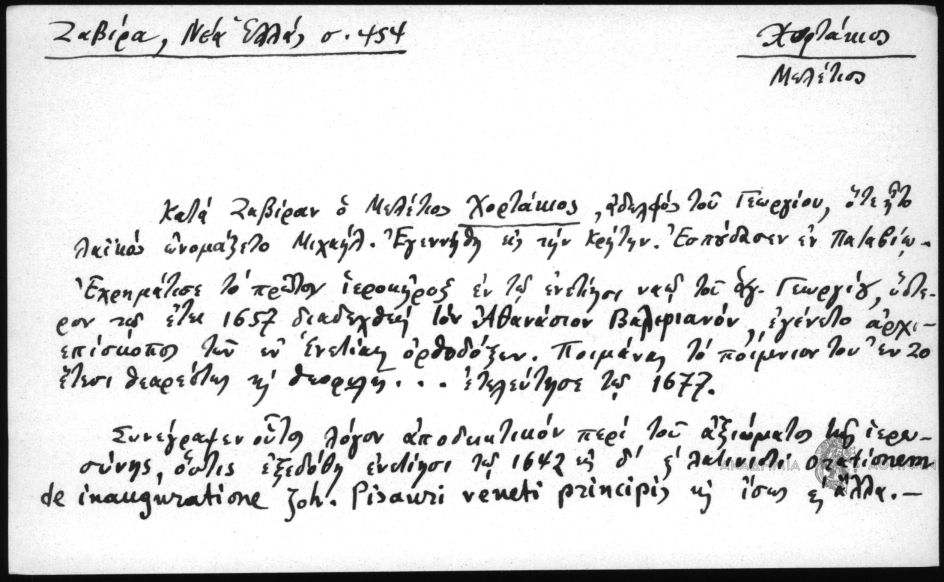 Ζαβίρα, Νέα Ἑλλάς σ. 454
Χορτάκιος
Μελέτιος
Κατά Ζαβίραν ὁ Μελέτιος Χορτάκιος, ἀδελφός τοῦ Γεωργίου, ὅτε ἦτο
λαϊκός ὠνομάζετο Μιχαήλ. Ἐγεννήθη εἰς τήν Κρήτην. Ἐσπούδασεν ἐν Παταβίῳ.-
Ἐχρημάτισε τό πρῶτον ἱεροκῆρυξ ἐν τῷ ἐνετίησι ναῷ τοῦ ἁγ. Γεωργίου, ὕστε-
ρον τῷ ἔτει 1657 διαδεχθείς τόν Ἀθανάσιον Βαλεριανόν, ἐγένετο ἀρχι-
επίσκοπος τῶν ἐν Ἐνετίαις ὀρθοδόξων. Ποιμάνας τό ποίμνιον του ἐν 20
ἔτεσι θεαρέστως καί θεοφιλῶς... ἐτελεύτησε τῷ 1677.
Συνέγραψεν οὗτος λόγον ἀποδεικτικόν περί τοῦ ἀξιώματος τῆς ἱερω-
σύνης, ὅστις ἐξεδόθη ἐνετίησι τῷ 1642 εἰς δ', καί λατινιστί orationem
de inauguratione Joh. Pisauri veneti principis καί ἴσως καί ἄλλα.-